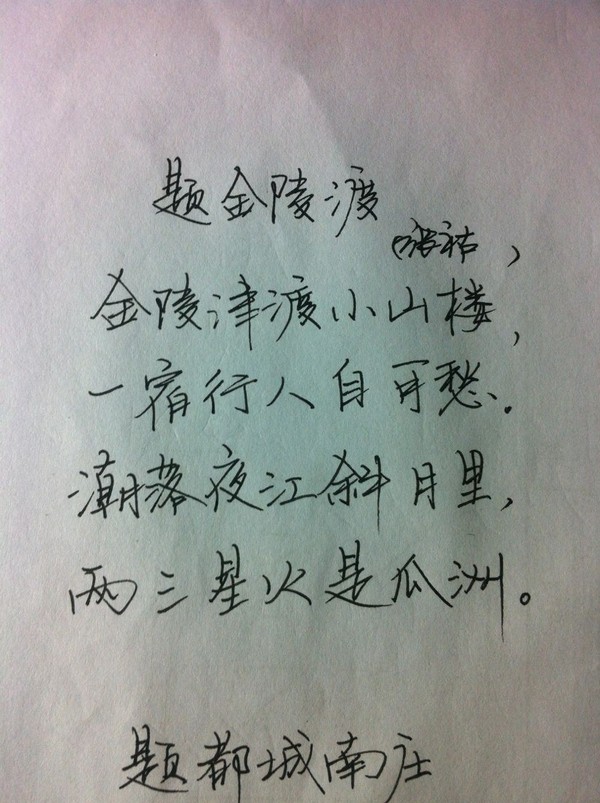 题金陵渡
(张祜)
金陵津渡小山楼,
一宿行人自可愁.
潮落夜江斜月里,
两三星火是瓜洲。
题都城南庄